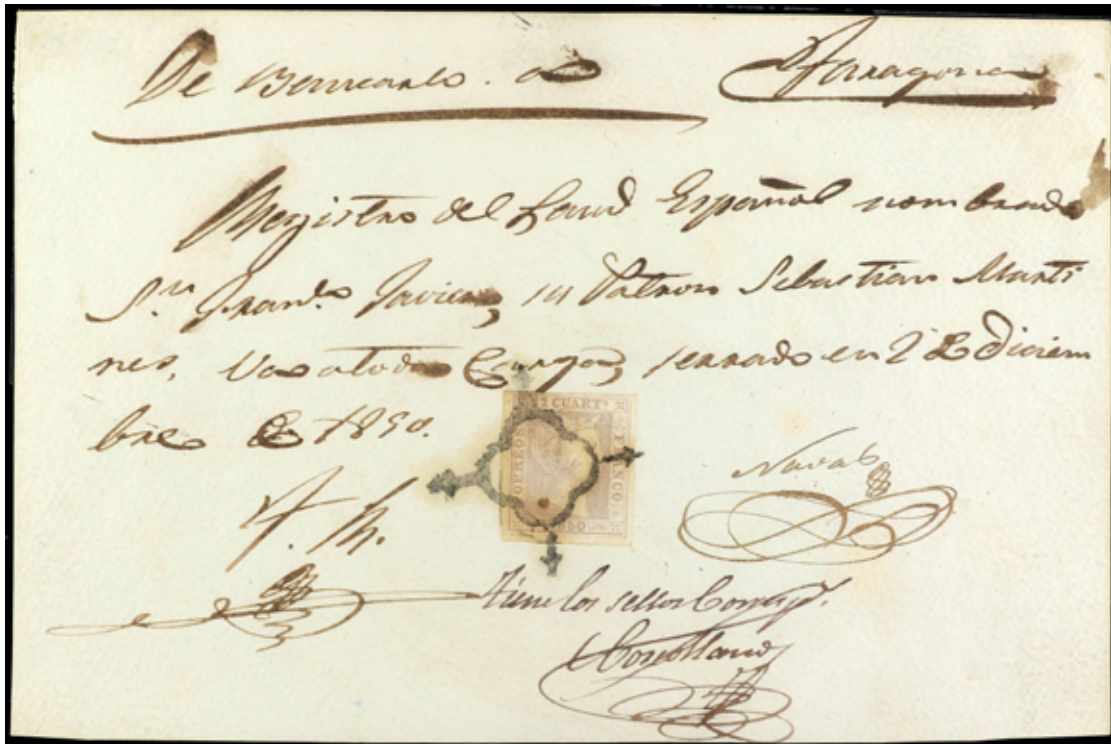 De Benicarlo. a Tarragona
Registro del Laud Español nombrado
Sn. Franco. Javier, su Patron Sebastian Marti
nes, Va a toda Carga, serrado en 2 de Diciem
bre de 1850.
2 CUARTS.
CORREOS
FRANCO
Naval
tiene los sellos